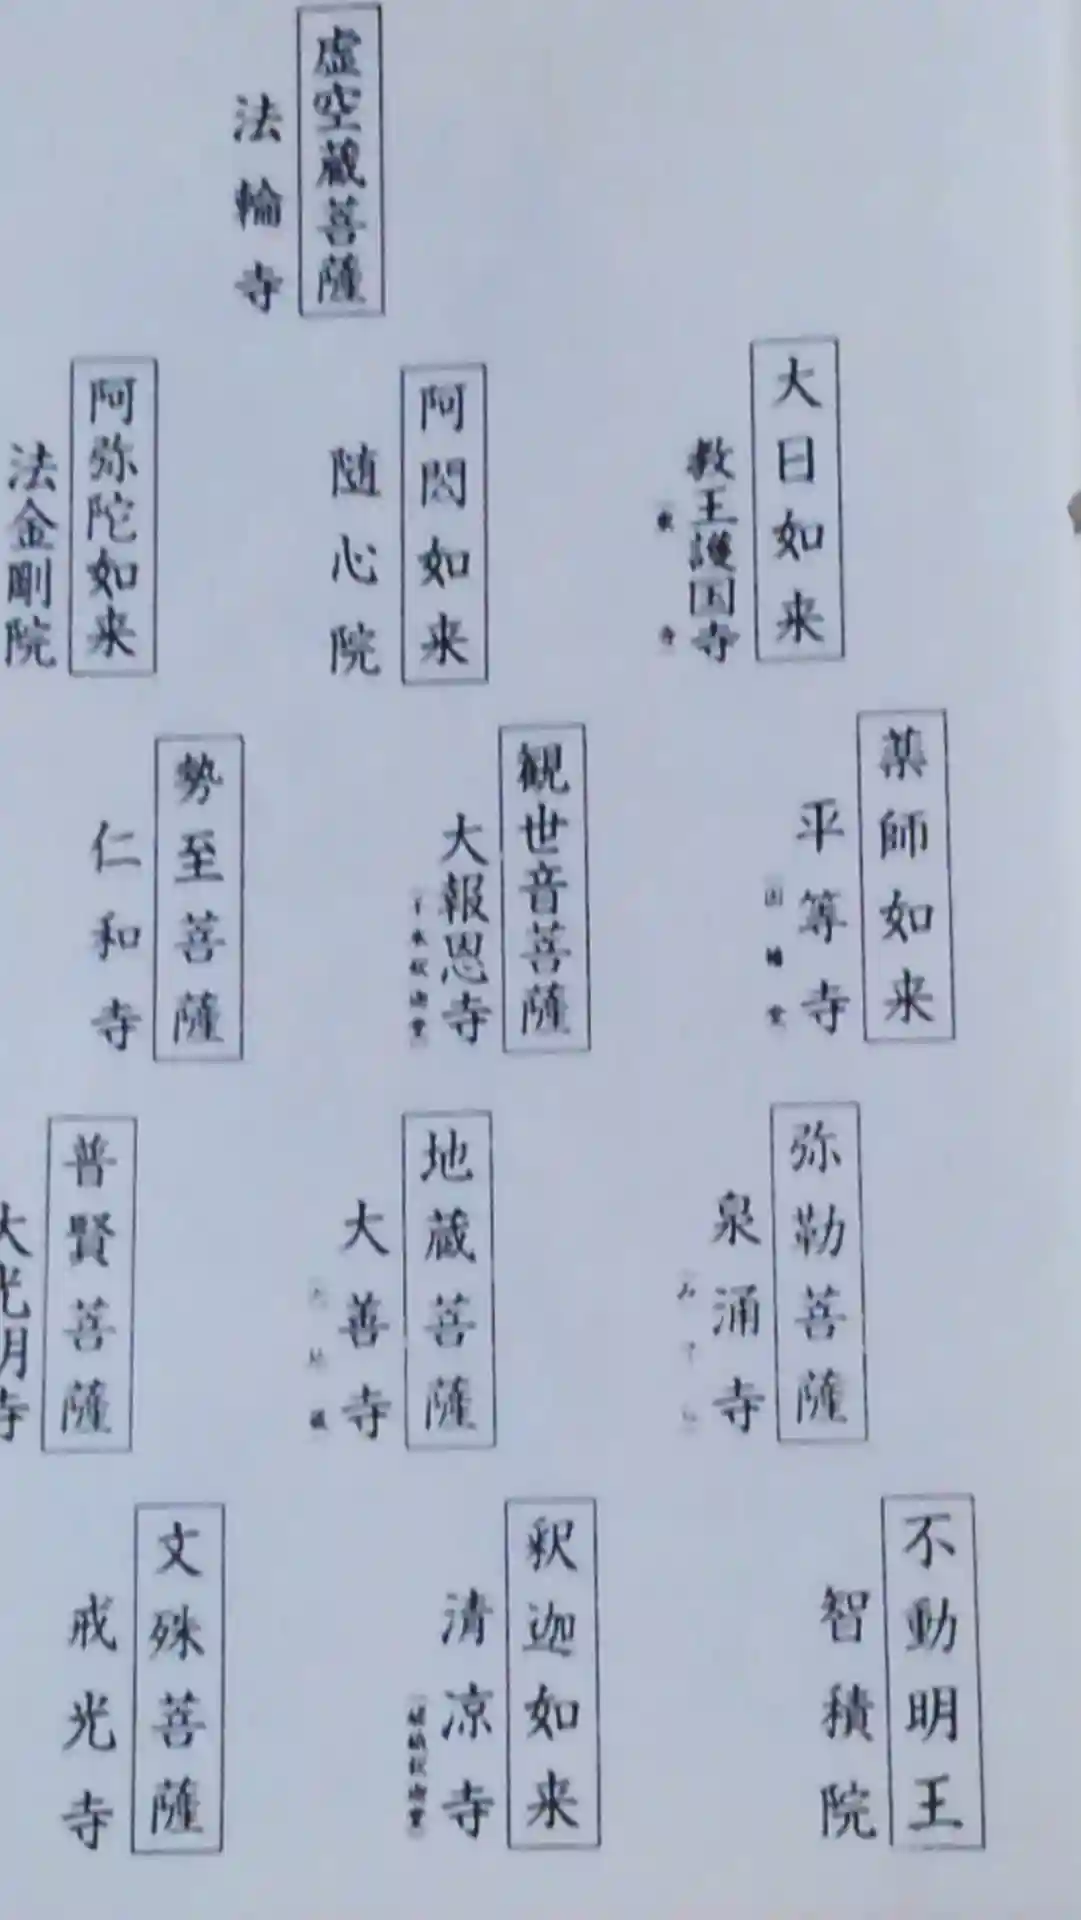 虚空蔵菩薩
法輪寺
大日如来
教王護国寺
東寺
阿閦如来
随心院
阿弥陀如来
法金剛院
薬師如来
平等寺
因幡堂
観世音菩薩
大報恩寺
千本釈迦堂
勢至菩薩
仁和寺
弥勒菩薩
泉涌寺
地蔵菩薩
大善寺
普賢菩薩
大光明寺
不動明王
智積院
釈迦如来
清凉寺
嵯峨釈迦堂
文殊菩薩
戒光寺